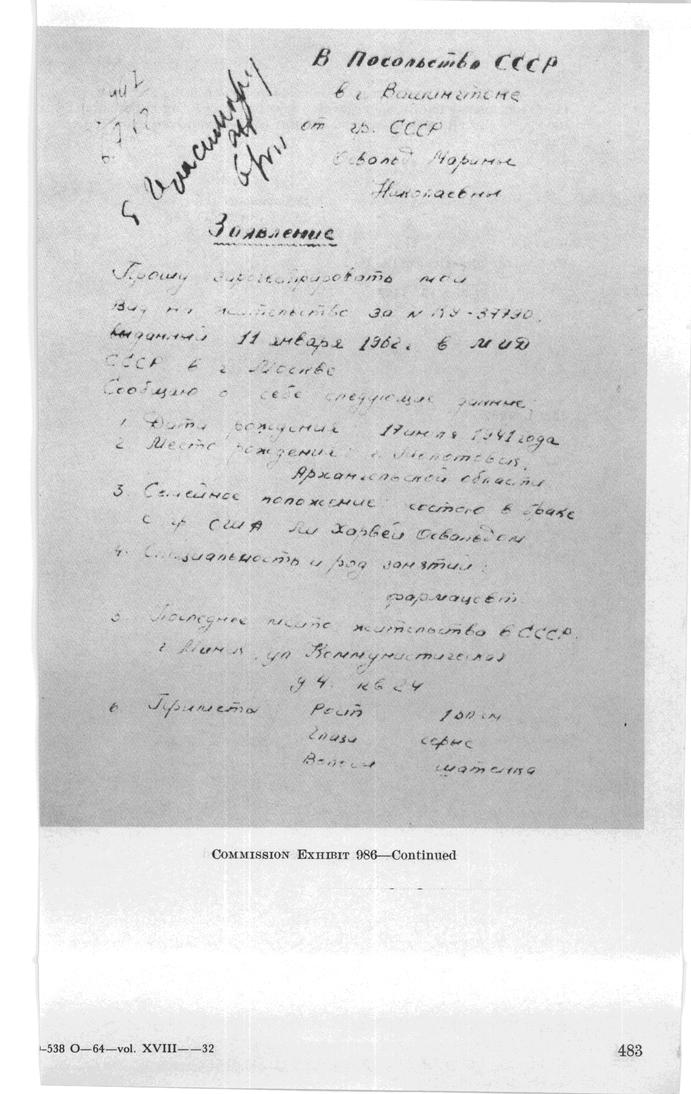 В Посольство СССР
в г. Вашингтоне
от гр. СССР
Освальд Марины
Николаевны
Заявление
Прошу зарегистрировать мой
Вид на жительство за №
выданный 11 января 1962 г. в МИД
СССР в г. Москве
Сообщаю о себе следующие данные:
1. Дата рождения 17 июля 1941 года
2. Место рождения: г.
Архангельской области
3. Семейное положение: состою в браке
с гр США Ли Харвей Освальдом
4. Специальность и род занятий:
фармацевт
5. Последнее место жительства в СССР.
г. Минск, ул Коммунистическая
д 4. кв 24
6 Приметы Рост
Глаза серые
Волосы шатенка
COMMISSION EXHIBIT 986—Continued
–538 O—64—vol. XVIII——32
483